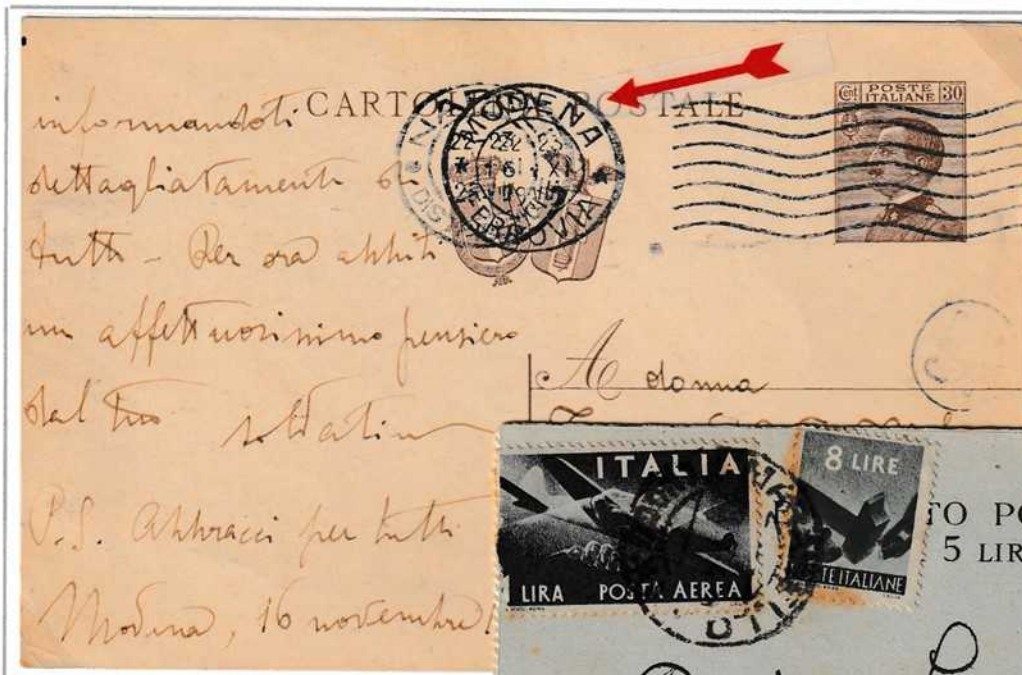 CARTOLINA POSTALE
Cent. POSTE ITALIANE 30
MODENA
FERROVIA
informandoti
dettagliatamente di
tutto - Per ora abbiti
un affettuosissimo pensiero
dal tuo
soldatino
P.S. Abbracci per tutti
Modena, 16 novembre
A donna
ITALIA
1 LIRA POSTA AEREA
8 LIRE
POSTE ITALIANE
TO PO
5 LIR